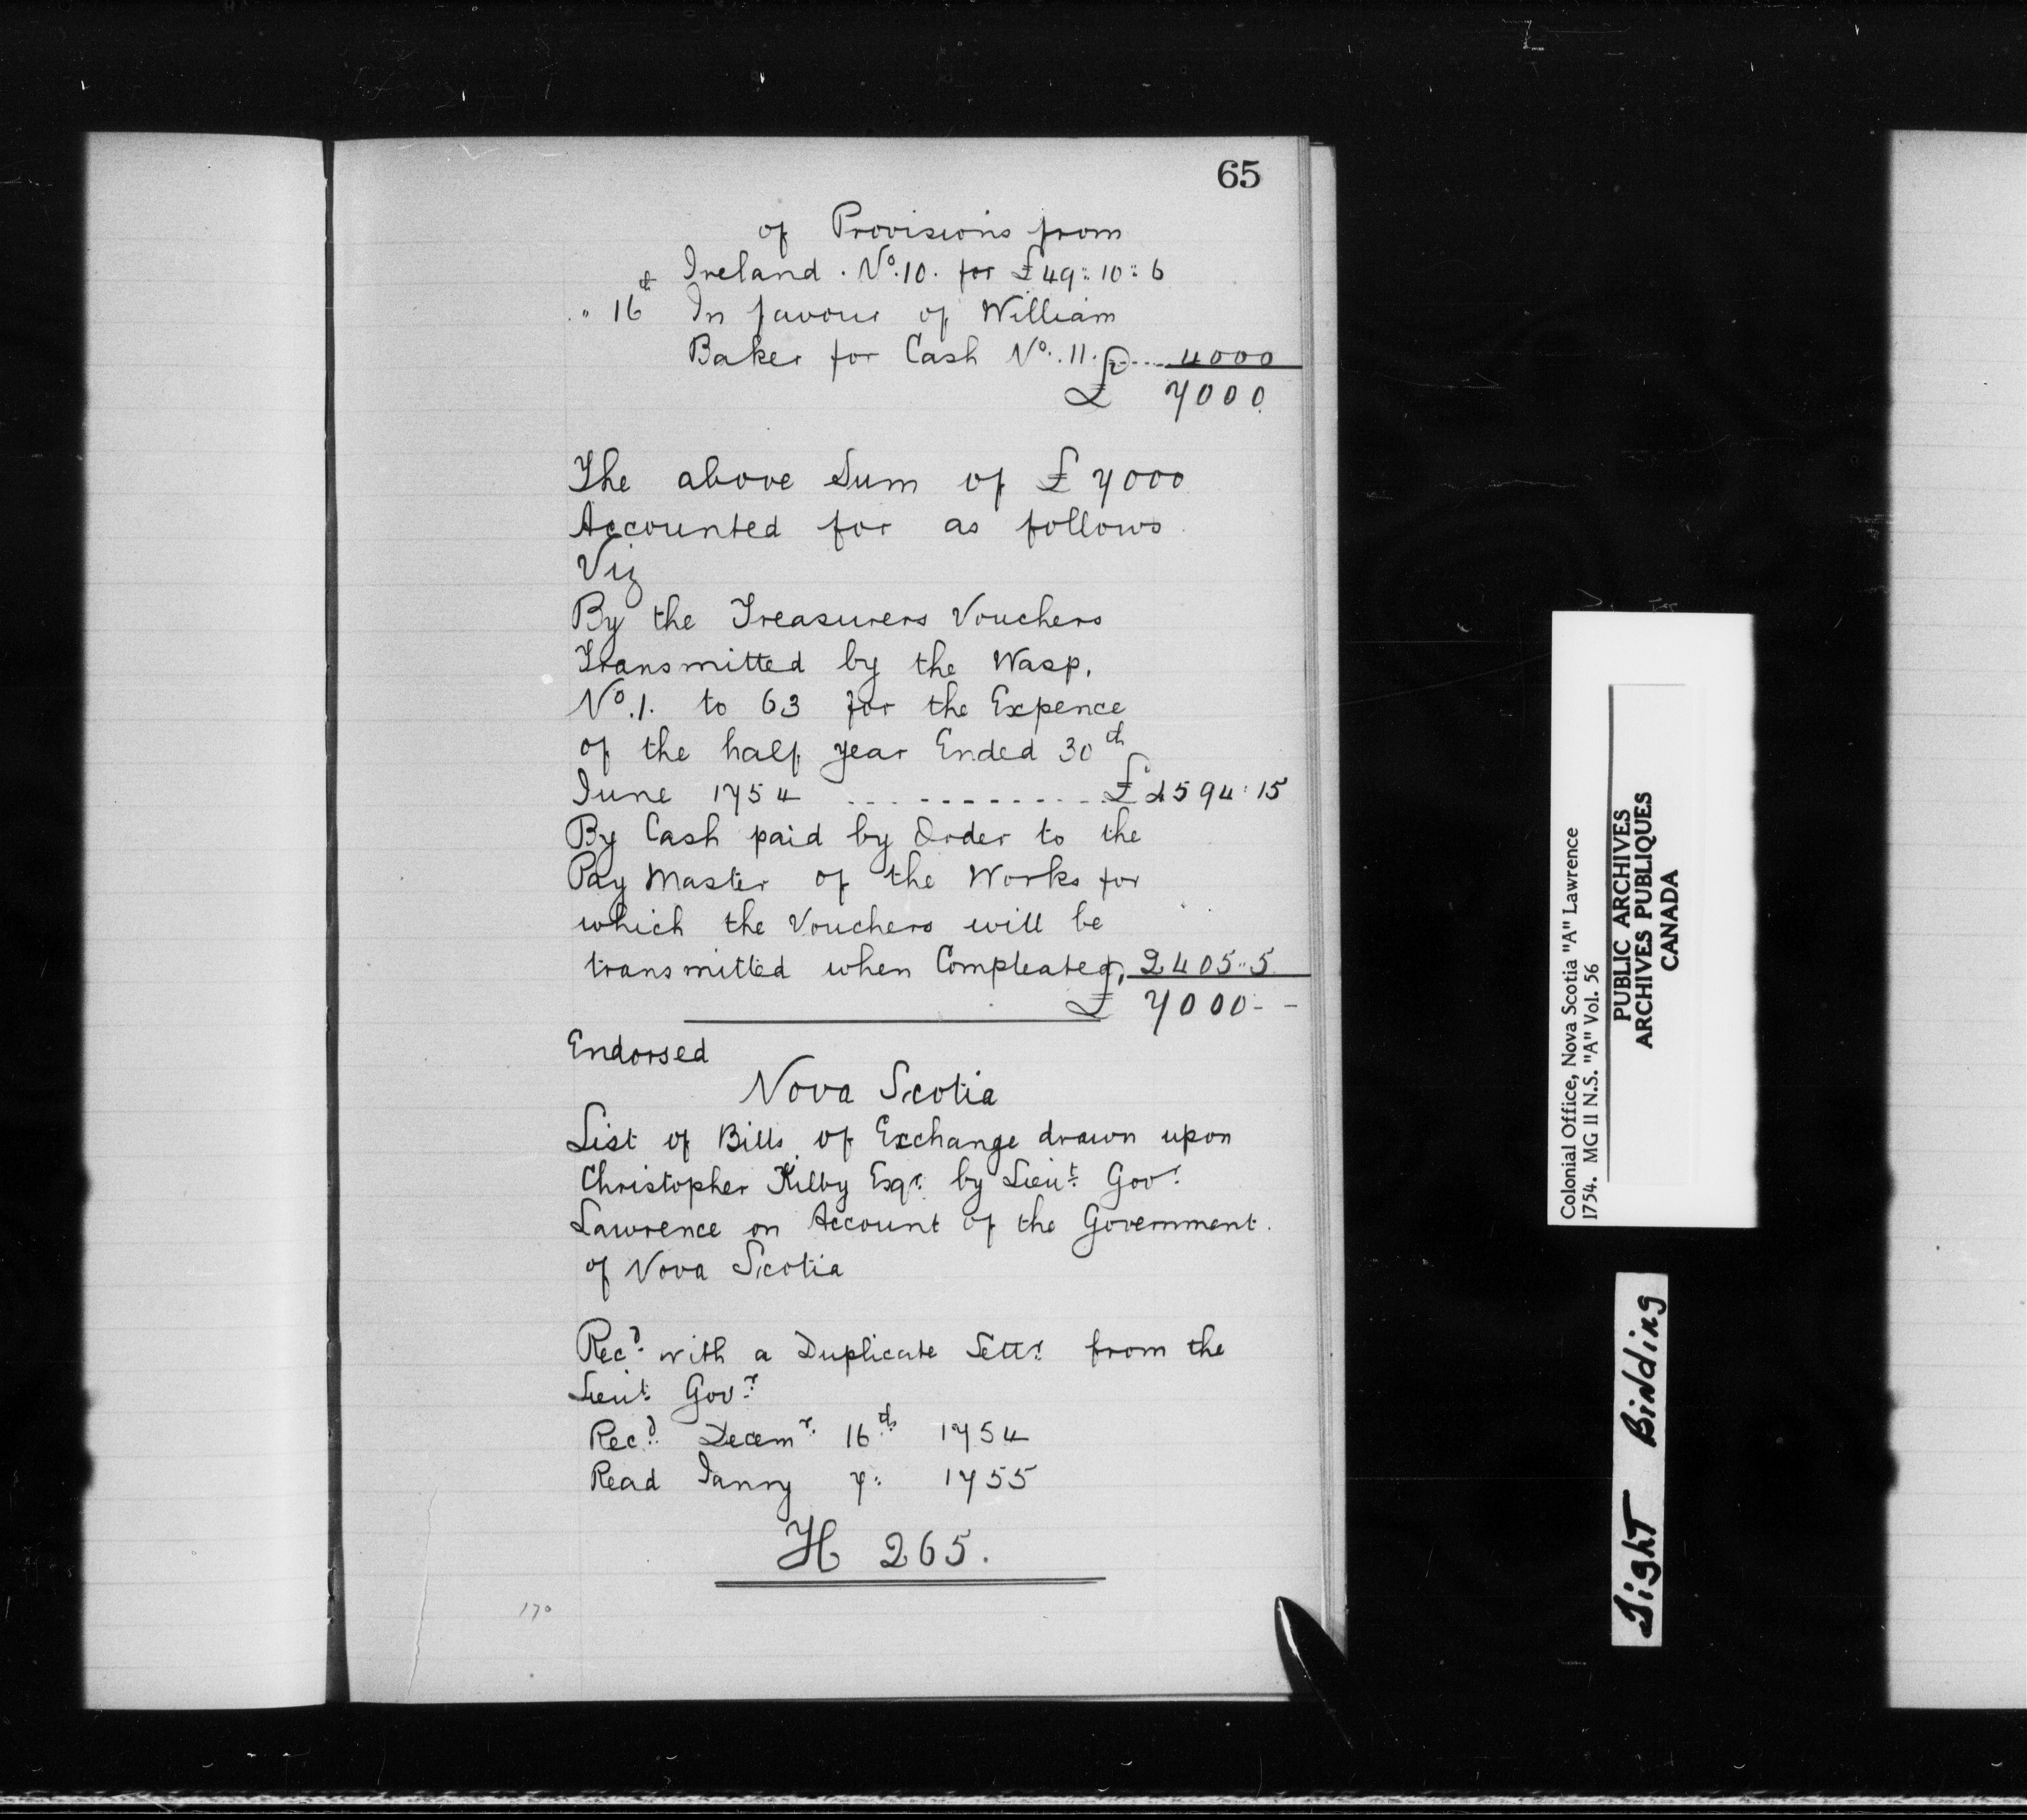 65
of Provisions from
Ireland. No. 10. for £49:10:6
" 16th In favour of William
Baker for Cash No. 11. £.... 4000
£ 7000
The above Sum of £7000
Accounted for as follows
Viz
By the Treasurers Vouchers
Transmitted by the Wasp,
No. 1. to 63 for the Expence
of the half year Ended 30th
June 1754 ............ £4594:15
By Cash paid by Order to the
Pay Master of the Works for
which the Vouchers will be
transmitted when Compleated, 2405..5
£ 7000--
Endorsed
Nova Scotia
List of Bills of Exchange drawn upon
Christopher Kilby Esqr. by Lieut. Govr.
Lawrence on Account of the Government.
of Nova Scotia
Recd. with a Duplicate Lettr. from the
Lieut. Govr.
Recd. Decemr. 16th 1754
Read Janry 7: 1755
H 265.
170
Colonial Office, Nova Scotia "A" Lawrence
1754. MG 11 N.S. "A" Vol. 56
PUBLIC ARCHIVES
ARCHIVES PUBLIQUES
CANADA
Tight Binding